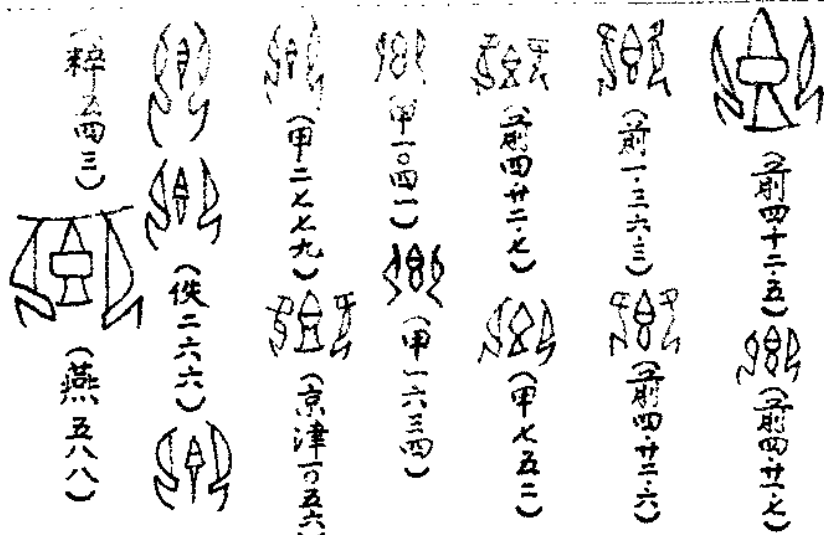 (前四·十二·五) (前四·廿一·七)
(前一·三六·三) (前四·廿二·六)
(前四廿二·七) (甲七五二)
(甲一〇四一) (甲一六三四)
(甲二七七九) (京津一〇五六
(佚二六六)
(粹五四三) (燕五八八)